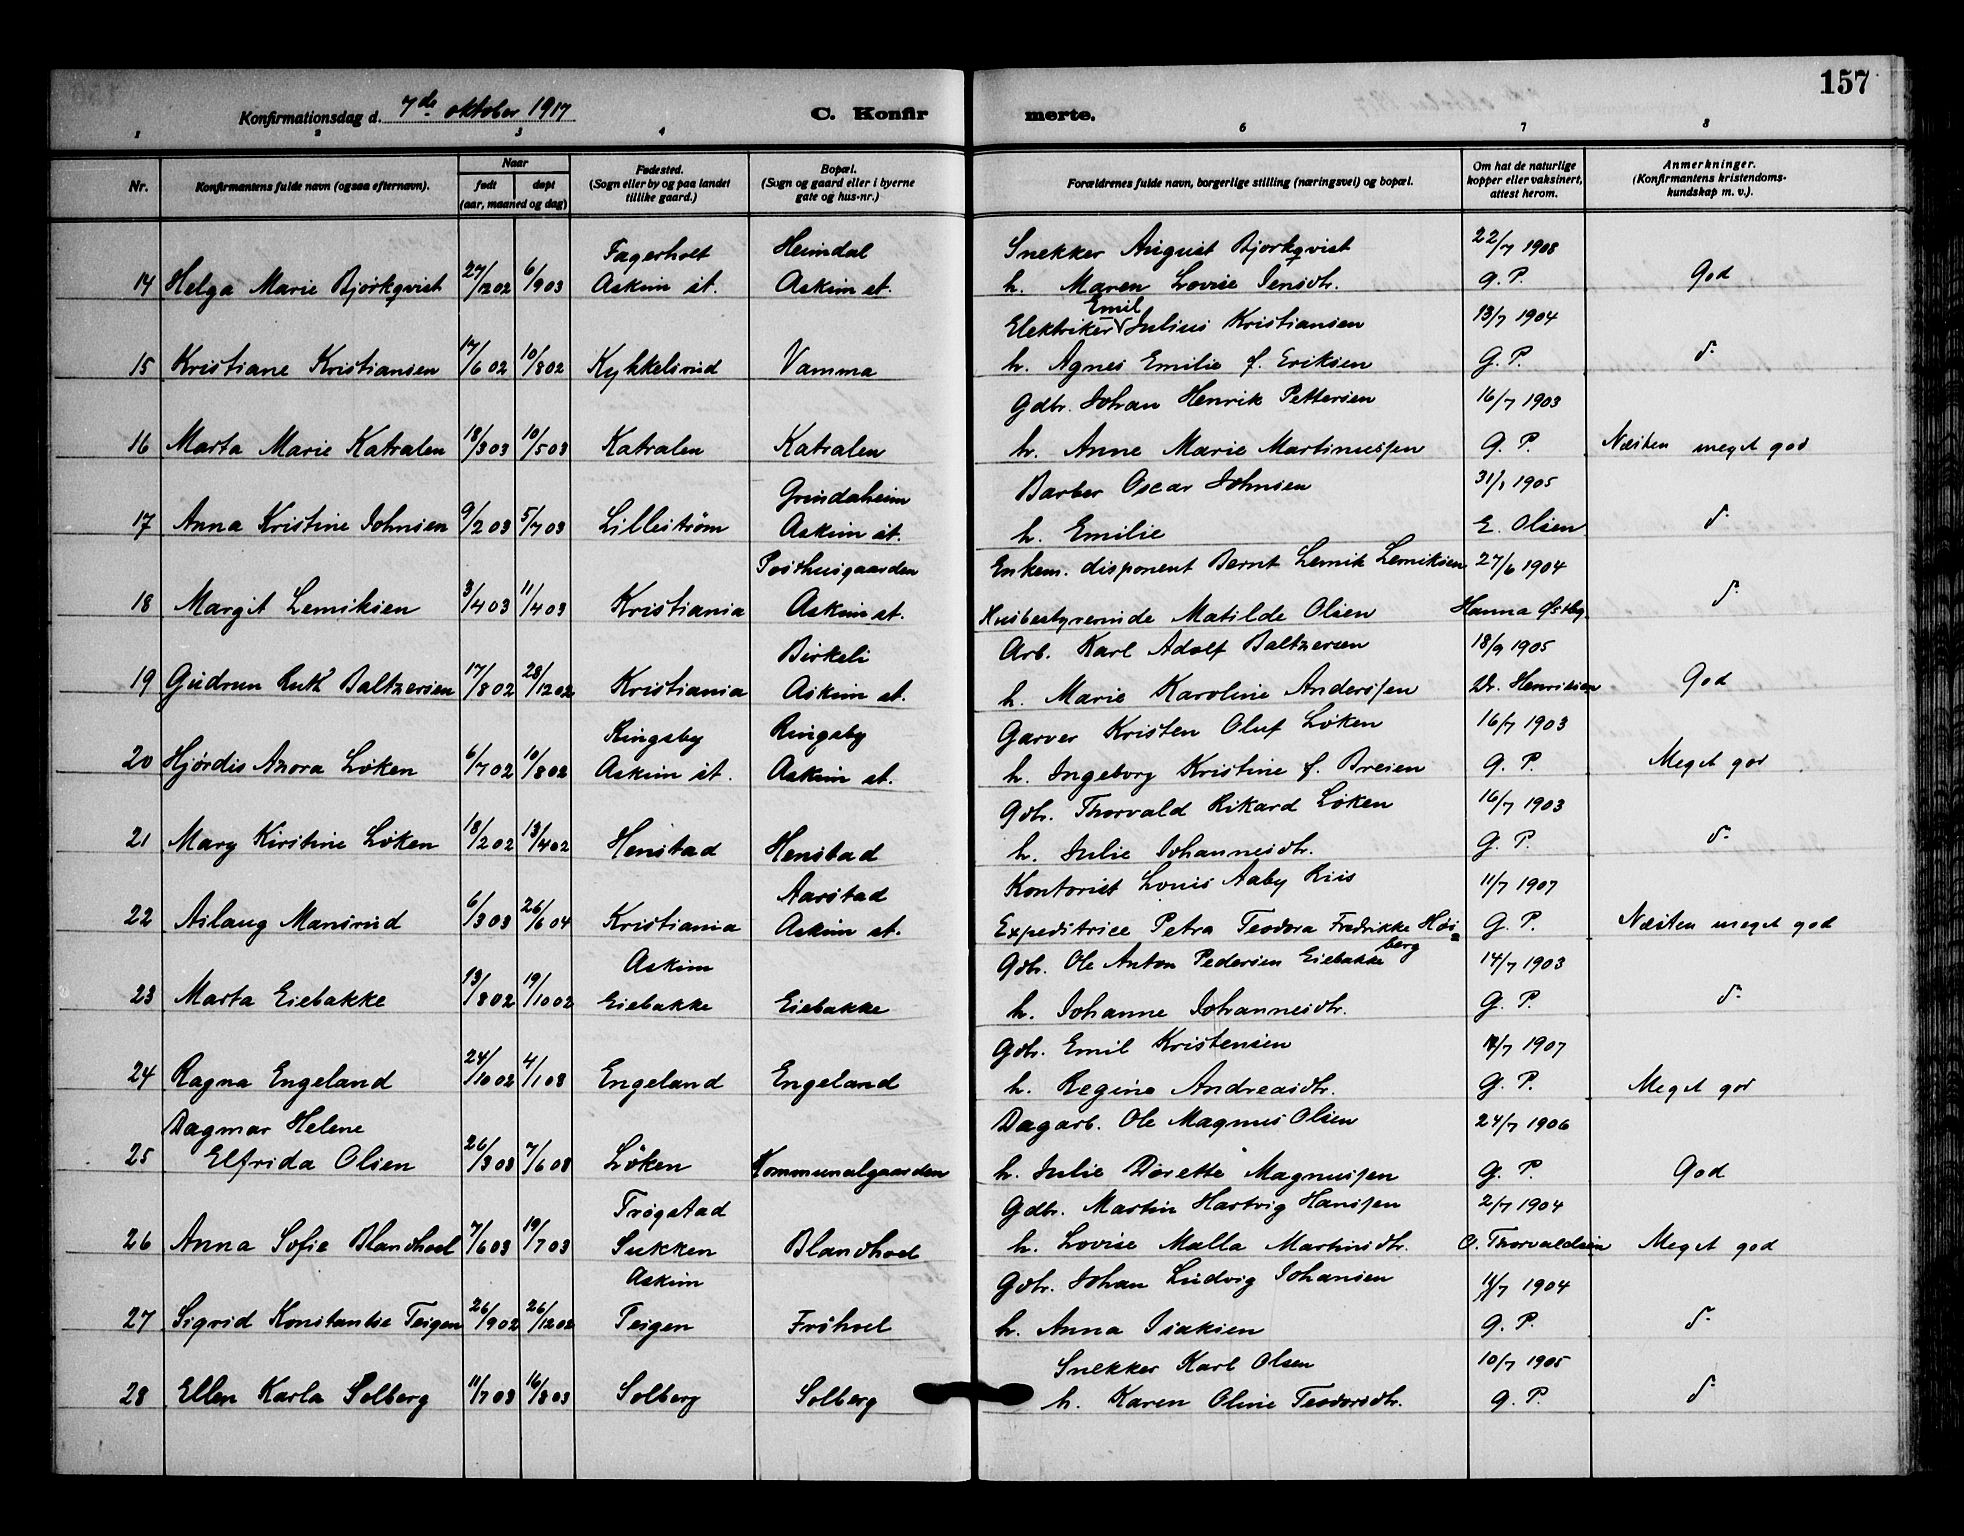 157
Konfirmationsdag d. 7de oktober 1917 C. Konfirmerte.
1 2 3 4 6 7 8
Nr. Konfirmantens fulde navn (ogsaa efternavn). Naar født døpt (aar, maaned og dag) Fødested. (Sogn eller by og paa landet tillike gaard.) Bopæl. (Sogn og gaard eller i byerne gate og hus-nr.) Forældrenes fulde navn, borgerlige stilling (næringsvei) og bopæl. Om hat de naturlige kopper eller vaksinert, attest herom. Anmerkninger. (Konfirmantens kristendoms-kundskap m. v.).
Fagerholt Heimdal Snekker August Bjørkqvist 22/7 1908
14 Helga Marie Bjørkqvist 27/12 02 6/9 03 Askim st. Askim st. h. Maren Lovise Jensdtr. G. P. God
Emil
Elektriker Julius Kristiansen 13/7 1904
15 Kristiane Kristiansen 17/6 02 10/8 02 Kykkelsrud Vamma h. Agnes Emilie f. Eriksen G. P. d.
Gdbr. Johan Henrik Pettersen 16/7 1903
16 Marta Marie Katralen 18/3 03 10/5 03 Katralen Katralen h. Anne Marie Martinussen G. P. Næsten meget god
Grindaheim Barber Oscar Johnsen 31/1 1905
17 Anna Kristine Johnsen 9/2 03 5/7 03 Lillestrøm Askim st. h. Emilie E. Olsen d.
Posthusgaarden Enkem. disponent Bernt Lemik Lemiksen 27/6 1904
18 Margit Lemiksen 3/4 03 11/4 03 Kristiania Askim st. Husbestyrerinde Matilde Olsen Hanna Østby d.
Birkeli Arb. Karl Adolf Baltzersen 18/9 1905
19 Gudrun Ruth Baltzersen 17/8 02 28/12 02 Kristiania Askim st. h. Marie Karoline Anderssen Dr. Henriksen God
Ringsby Ringsby Garver Kristen Oluf Løken 16/7 1903
20 Hjørdis Azora Løken 6/7 02 10/8 02 Askim st. Askim st. h. Ingeborg Kristine f. Breien G. P. Meget god
Gdbr. Thorvald Rikard Løken 16/7 1903
21 Mary Kirstine Løken 18/2 02 13/4 02 Henstad Henstad h. Julie Johannesdtr. G. P. d.
Aarstad Kontorist Louis Aaby Riis 11/7 1907
22 Aslaug Mansrud 6/3 03 26/6 04 Kristiania Askim st. Expeditrice Petra Teodora Fredrikke Høi= G. P. Næsten meget god
berg
Askim Gdbr. Ole Anton Pedersen Eiebakke 14/7 1903
23 Marta Eiebakke 13/8 02 19/10 02 Eiebakke Eiebakke h. Johanne Johannesdtr. G. P. d.
Gdbr. Emil Kristensen /7 1907
24 Ragna Engeland 24/10 02 4/1 03 Engeland Engeland h. Regine Andreasdtr. G. P. Meget god
Dagmar Helene Dagarb. Ole Magnus Olsen 24/7 1906
25 Elfrida Olsen 26/3 03 7/6 03 Løken Kommunalgaarden h. Julie Dorette Magnussen G. P. God
Trøgstad Gdbr. Martin Hartvig Hanssen 2/7 1904
26 Anna Sofie Blandhoel 7/6 03 19/7 03 Sukken Blandhoel h. Lovise Malla Martinsdtr. O. Thorvaldsen Meget god
Askim Gdbr. Johan Ludvig Johansen 11/7 1904
27 Sigrid Konstantse Teigen 26/9 02 26/12 02 Teigen Frøhoel h. Anna Isaksen G. P. d.
Snekker Karl Olsen 10/7 1905
28 Ellen Karla Solberg 11/7 03 16/8 03 Solberg Solberg h. Karen Oline Teodorsdtr. G. P. d.